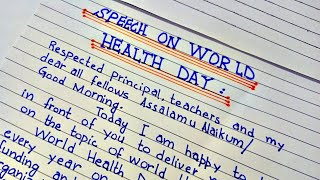 SPEECH ON WORLD
HEALTH DAY :
Respected principal, teachers and my
dear all fellows Assalamu Alaikum/
Good Morning. Today I am happy to
in front of you to deliver
on the topic of World H
World Health D
every year on
funding an